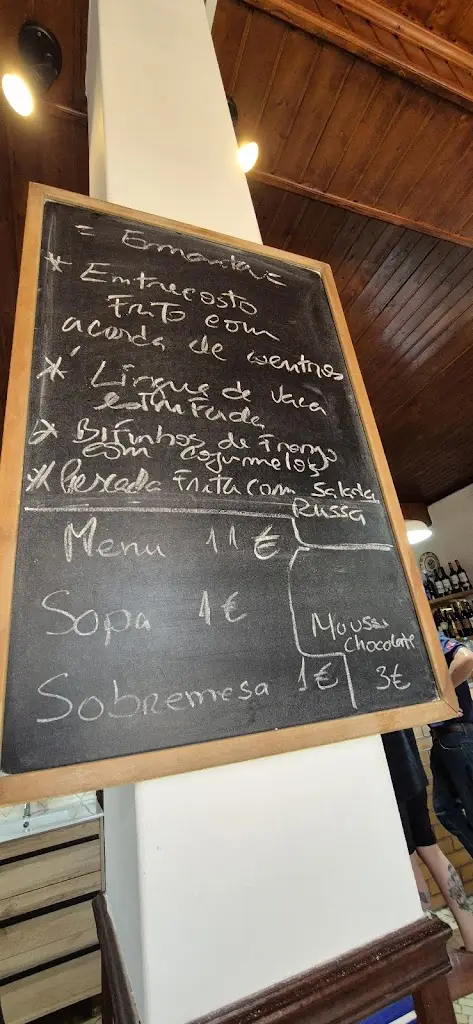 = Ementa =
* Entrecosto
Frito com
açorda de coentros
* Lingua de vaca
estufada
* Bifinhos de Frango
com cogumelos
* Pescada Frita com Salada
Russa
Menu 11€
Sopa 1€
Mousse
Chocolate
Sobremesa 1€ 3€